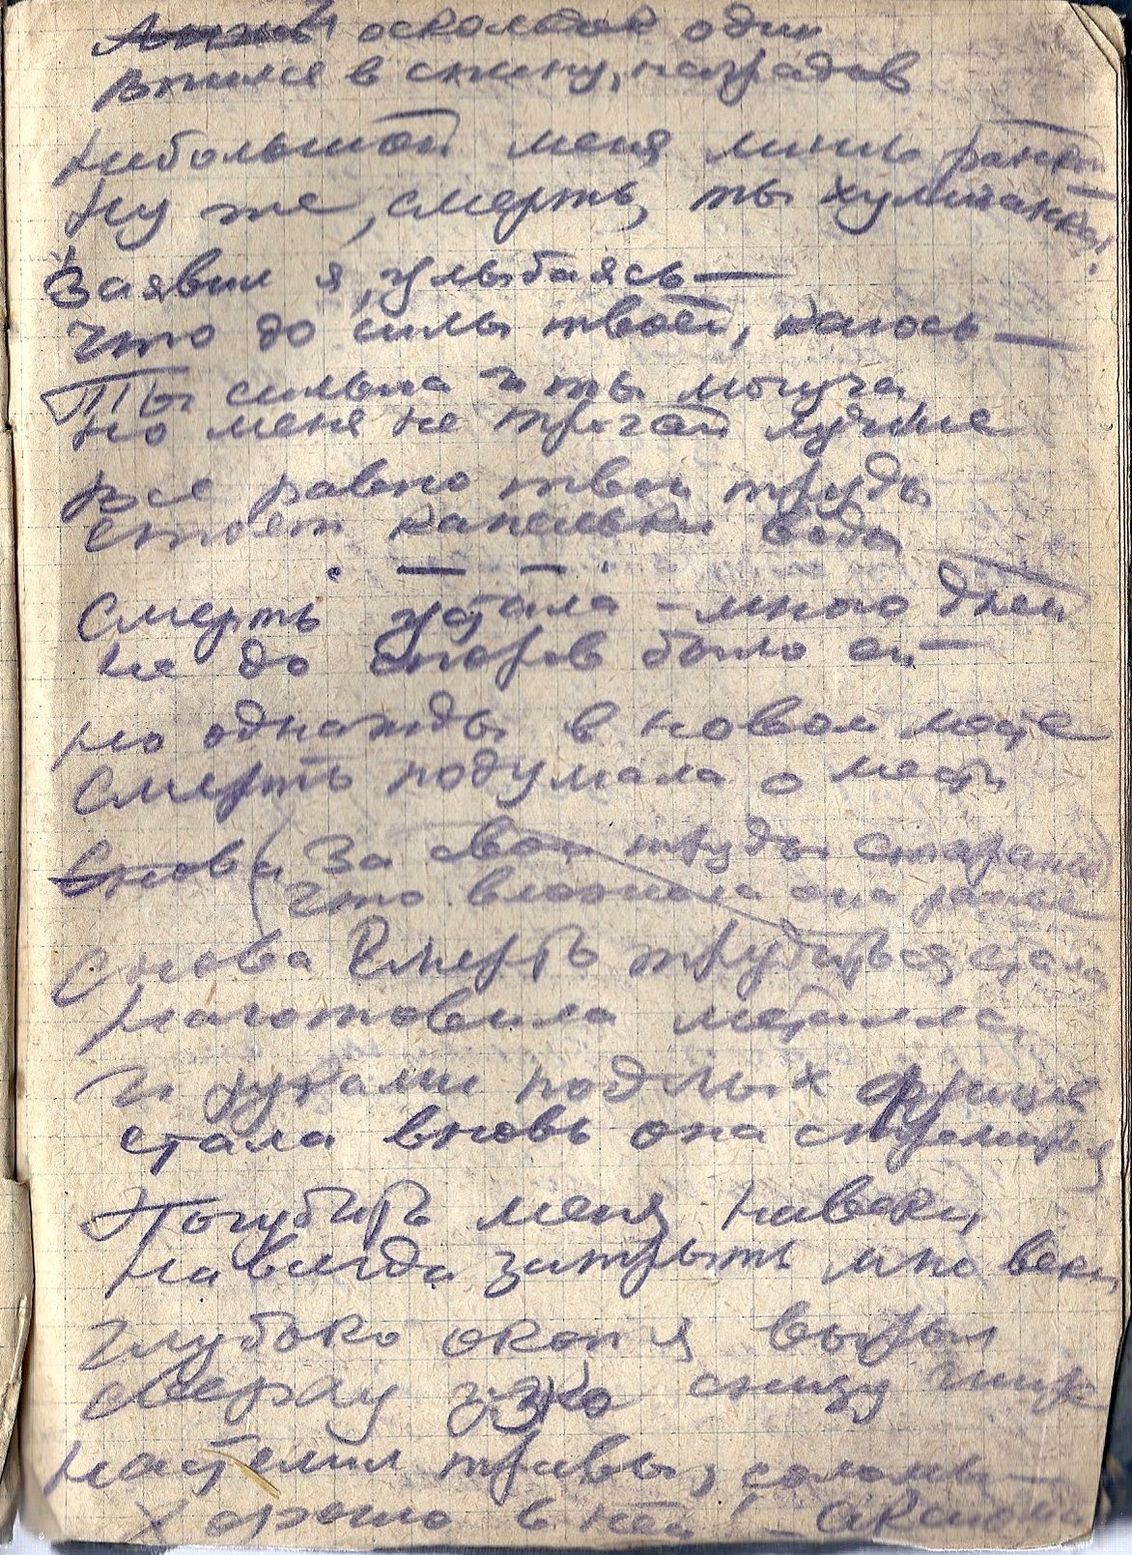 осколков один
Впился в спину, наградив
Небольшой меня лишь ранкой
Ну же, смерть, ты хулиганка!
Заявил я, улыбаясь —
Что до силы твоей, каюсь —
Ты сильна и ты могуча,
Но меня не трогай лучше
Все равно твои труды
Стоят капельки воды
. — — .
Смерть устала – много дней
Не до споров было ей —
Но однажды в новом месте
Смерть подумала о мести
Снова (За свои труды старанья)
Что вложила она ранее
Снова Смерть трудиться стала
Наготовила металла,
И руками подлых фрицев
Стала вновь она стремиться
Погубить меня навеки,
Навсегда закрыть мне веки,
Глубоко окоп я вырыл
Сверху узко снизу шире
Настелил травы, соломы —
Хорошо в ней! –